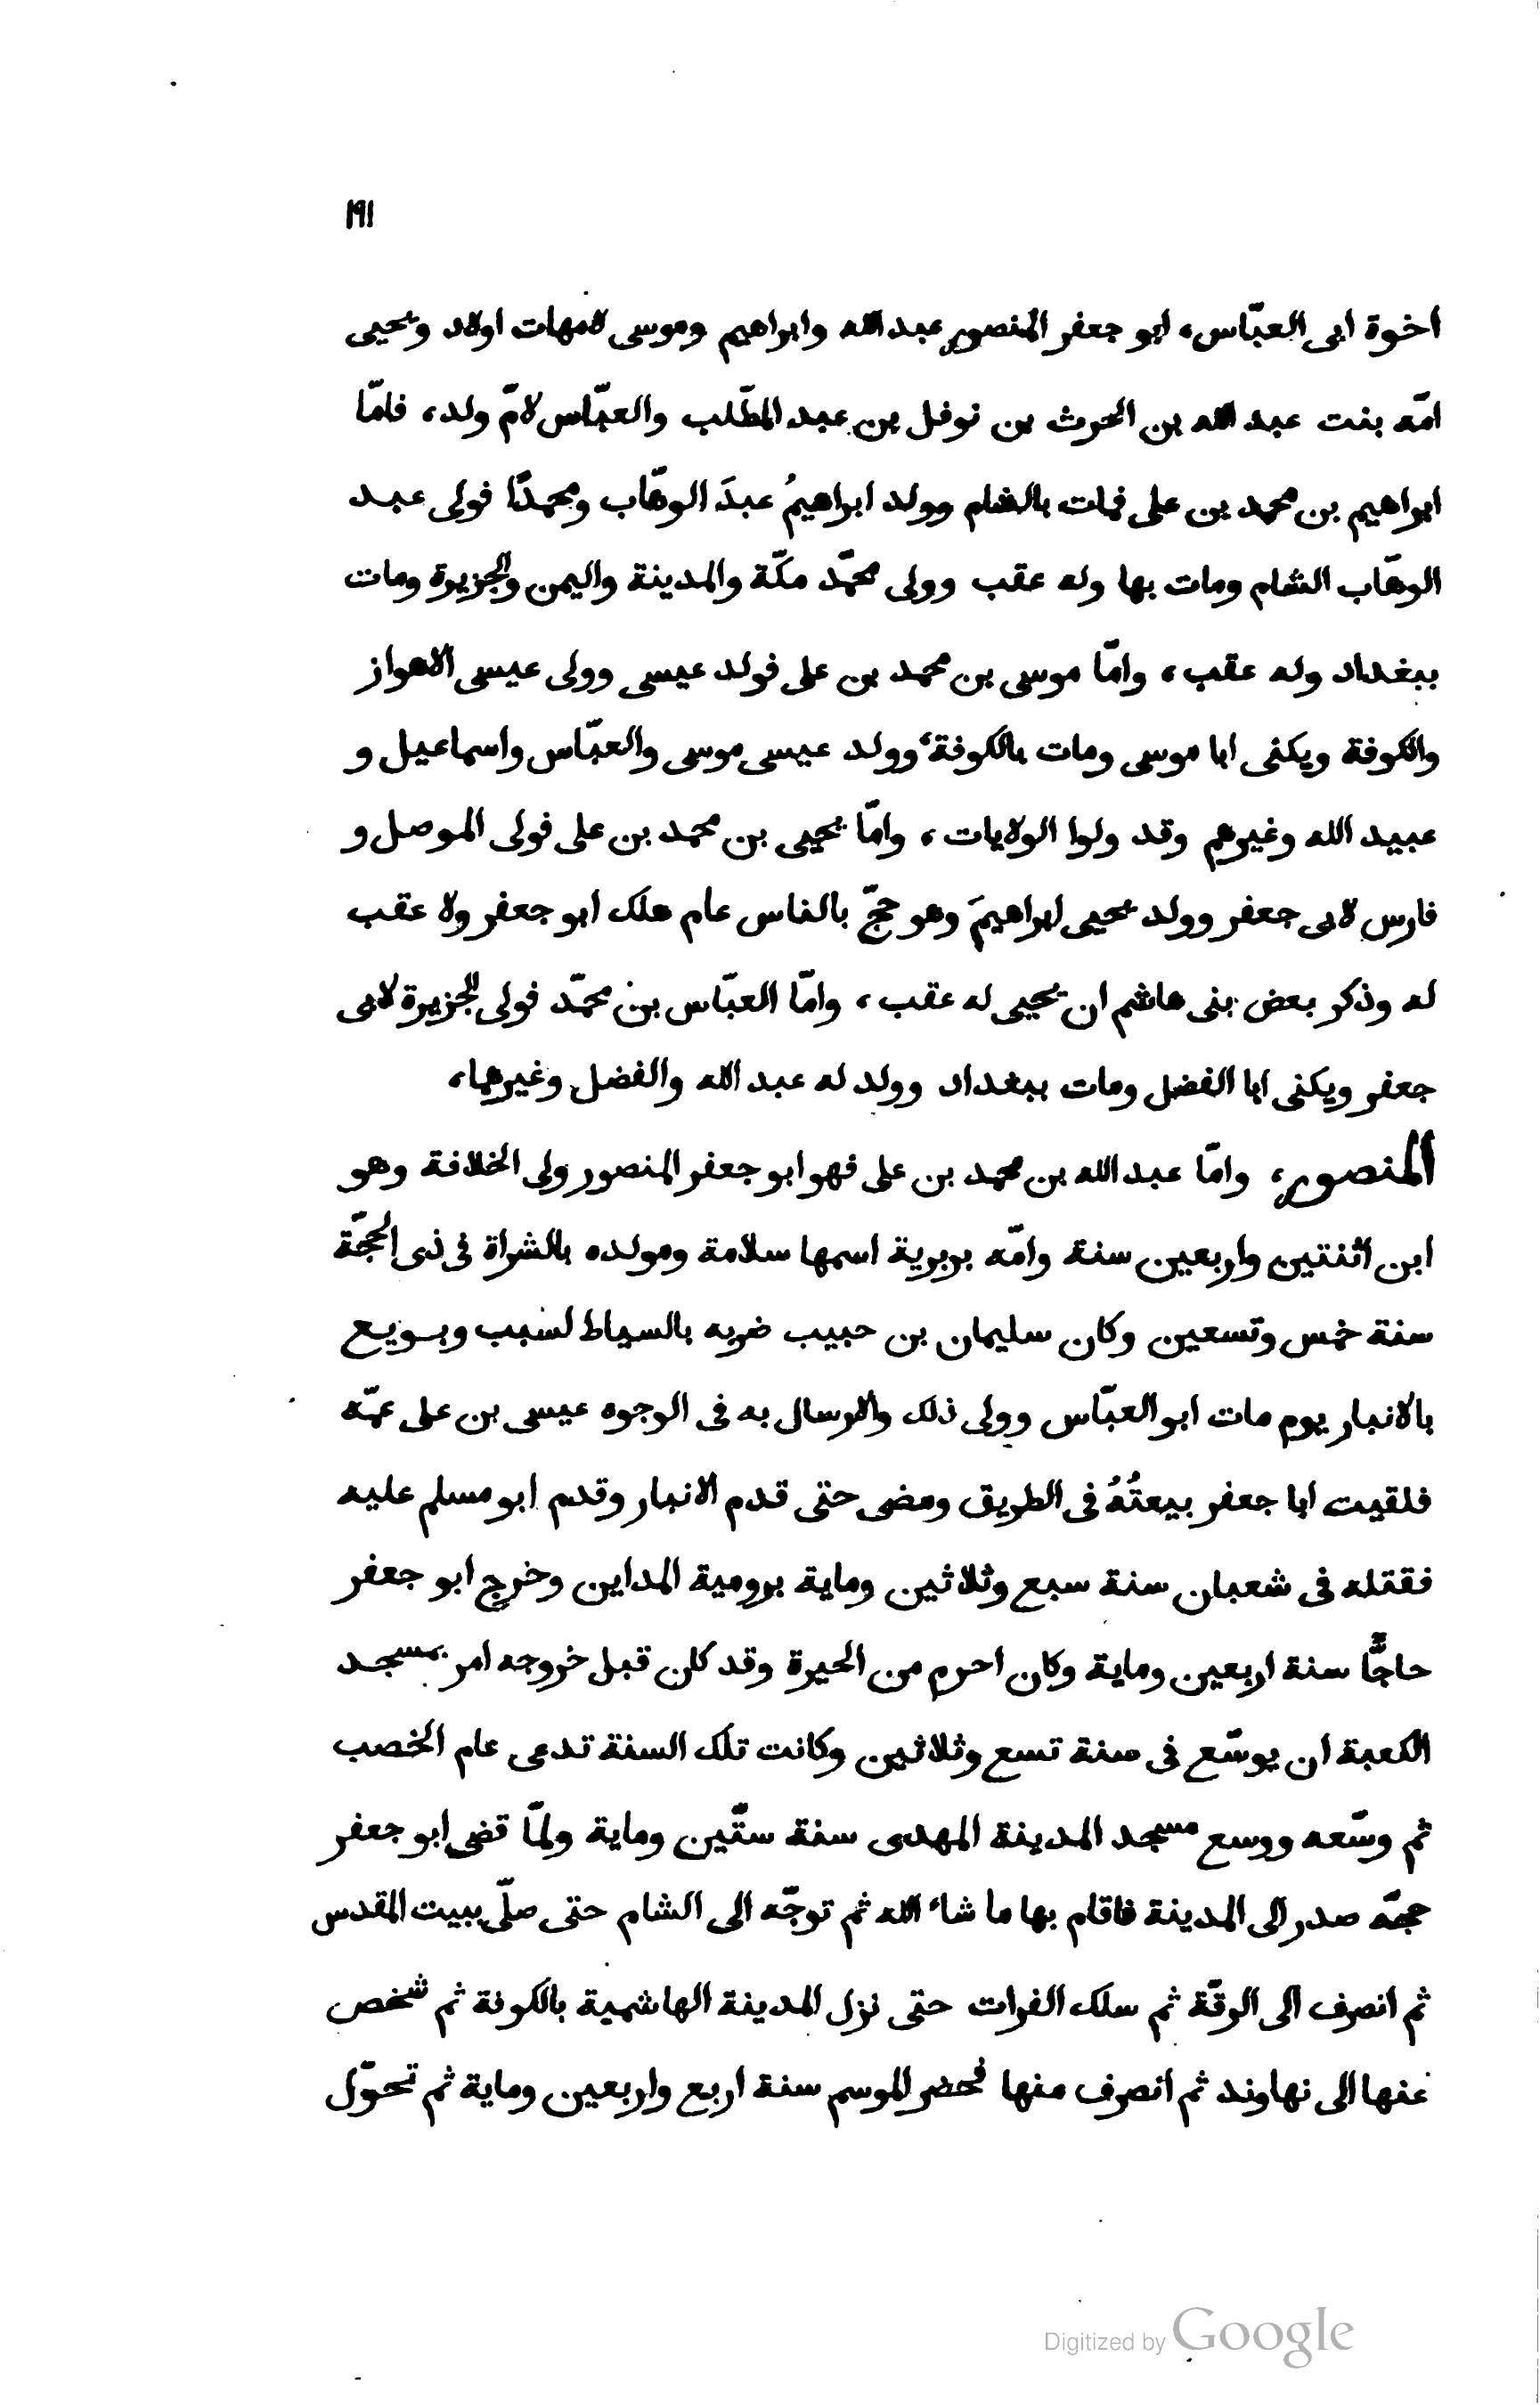 ١٩١
اخوة ابى العبّاس، ابو جعفر المنصور عبد الله وابراهيم وموسى لامهات اولاد ويحيى
امّه بنت عبد الله بن الحرث بن نوفل بن عبد المطّلب والعبّاس لامّ ولد، فامّا
ابراهيم بن محمد بن على فمات بالشام وولد ابراهيمُ عبدَ الوهّاب ومحمدًا فولى عبد
الوهّاب الشام ومات بها وله عقب وولى محمّد مكّة والمدينة واليمن والجزيرة ومات
ببغداد وله عقب، وامّا موسى بن محمد بن على فولد عيسى وولى عيسى الاهواز
والكوفة ويكنى ابا موسى ومات بالكوفة، وولد عيسى موسى والعبّاس واسماعيل و
عبيد الله وغيرهم وقد ولوا الولايات، وامّا يحيى بن محمد بن على فولى الموصل و
فارس لابى جعفر وولد يحيى ابراهيمَ وهو حجّ بالناس عام هلك ابو جعفر ولا عقب
له وذكر بعض بنى هاشم ان يحيى له عقب، وامّا العبّاس بن محمّد فولى الجزيرة لابى
جعفر ويكنى ابا الفضل ومات ببغداد وولد له عبد الله والفضل وغيرهما،
المنصور، وامّا عبد الله بن محمد بن على فهو ابو جعفر المنصور ولى الخلافة وهو
ابن اثنتين واربعين سنة وامّه بربرية اسمها سلامة ومولده بالشراة فى ذى الحجّة
سنة خمس وتسعين وكان سليمان بن حبيب ضربه بالسياط لسبب وبويع
بالانبار يوم مات ابو العبّاس وولى ذلك والارسال به فى الوجوه عيسى بن على عمّه
فلقيت ابا جعفر بيعتُهُ فى الطريق ومضى حتى قدم الانبار وقدم ابو مسلم عليه
فقتله فى شعبان سنة سبع وثلاثين وماية برومية المداين وخرج ابو جعفر
حاجًّا سنة اربعين وماية وكان احرم من الحيرة وقد كان قبل خروجه امر بمسجد
الكعبة ان يوسّع فى سنة تسع وثلاثين وكانت تلك السنة تدعى عام الخصب
ثم وسّعه ووسع مسجد المدينة المهدى سنة ستّين وماية ولمّا قضى ابو جعفر
حجّه صدر الى المدينة فاقام بها ما شاء الله ثم توجّه الى الشام حتى صلّى ببيت المقدس
ثم انصرف الى الرقّة ثم سلك الفرات حتى نزل المدينة الهاشمية بالكوفة ثم شخص
عنها الى نهاوند ثم انصرف منها فحضر الموسم سنة اربع واربعين وماية ثم تحوّل
Digitized by Google